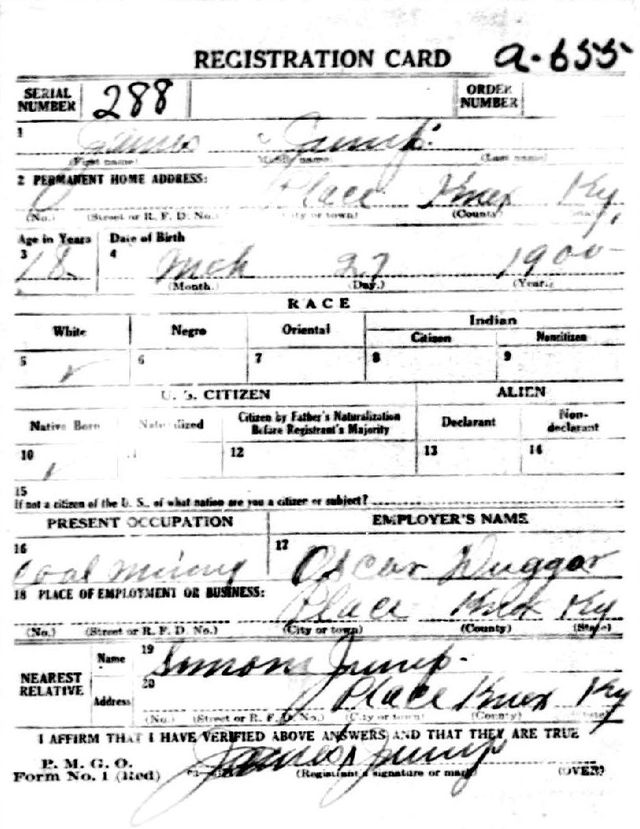 REGISTRATION CARD a-655
SERIAL NUMBER 288 ORDER NUMBER
1 James Jump
(First name) (Middle name) (Last name)
2 PERMANENT HOME ADDRESS: Place Knox Ky,
(No.) (Street or R. F. D. No.) (City or town) (County) (State)
Age in Years Date of Birth
3 18 4 Mch 27 1900
(Month.) (Day.) (Year.)
RACE
White Negro Oriental Indian
Citizen Noncitizen
5 6 7 8 9
U. S. CITIZEN ALIEN
Native Born Naturalized Citizen by Father's Naturalization Before Registrant's Majority Declarant Non-declarant
10 11 12 13 14
15
If not a citizen of the U. S., of what nation are you a citizen or subject?
PRESENT OCCUPATION EMPLOYER'S NAME
16 Coal Mining 17 Oscar Duggar
18 PLACE OF EMPLOYMENT OR BUSINESS:
Place Knox Ky
(No.) (Street or R. F. D. No.) (City or town) (County) (State)
NEAREST RELATIVE Name 19 Simon Jump
Address 20 Place Knox Ky
(No.) (Street or R. F. D. No.) (City or town) (County) (State)
I AFFIRM THAT I HAVE VERIFIED ABOVE ANSWERS AND THAT THEY ARE TRUE
P. M. G. O.
Form No. 1 (Red) James Jump
(Registrant's signature or mark) (OVER)